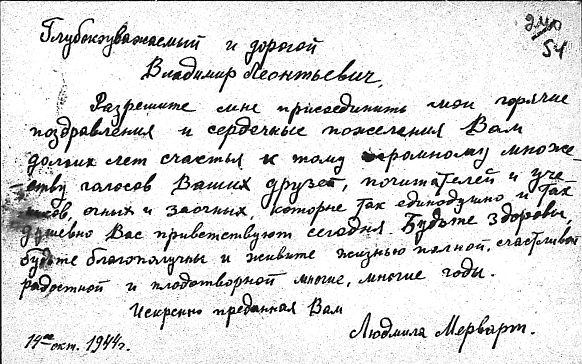 240
54
Глубокоуважаемый и дорогой
Владимир Леонтьевич,
Разрешите мне присоединить мои горячие
поздравления и сердечные пожелания Вам
долгих лет счастья к тому огромному множе-
ству голосов Ваших друзей, почитателей и уче-
ников, очных и заочных, которые так единодушно и так
душевно Вас приветствуют сегодня. Будьте здоровы,
будьте благополучны и живите жизнью полной, счастливой
радостной и плодотворной многие, многие годы.
Искренно преданная Вам
Людмила Мерварт.
14го окт. 1944г.